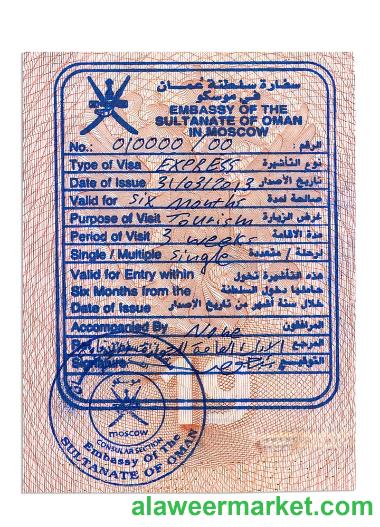 سفارة سلطنة عُمـــان
في موسكو
EMBASSY OF THE
SULTANATE OF OMAN
IN MOSCOW
No.: 010000 / 00 الرقم :
Type of Visa EXPRESS نوع التأشيرة
Date of Issue 31/03/2013 تاريخ الأصدار
Valid for Six months صالحة لمدة
Purpose of Visit Tourism غرض الزيارة
Period of Visit 3 weeks مدة الاقامة
Single / Multiple Single لرحلة / متعددة
Valid for Entry within هذه التأشيرة تخول
Six Months from the حاملها دخول السلطنة
Date of Issue خلال ستة أشهر من تاريخ الاصدار
Accompanied By None المرافقون
المرجع
التوقيع
موسكو
MOSCOW
CONSULAR SECTION
Embassy Of The
SULTANATE OF OMAN
19
alaweermarket.com